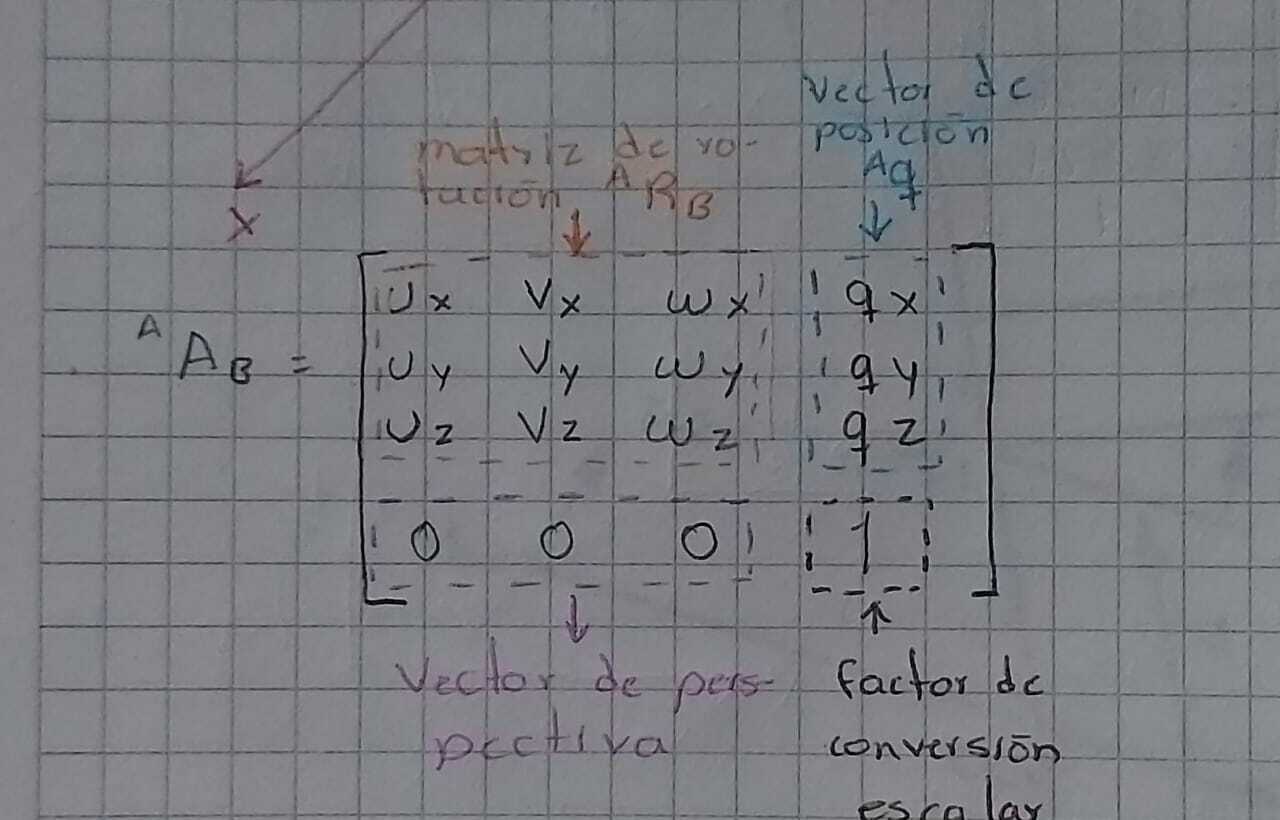 vector de
posición
ᴬq
matriz de ro-
tación ᴬR_B
X
ᴬA_B =
Ux Vx wx qx
Uy Vy wy qy
Uz Vz wz qz
0 0 0 1
Vector de pers-
pectiva
factor de
conversión
escalar